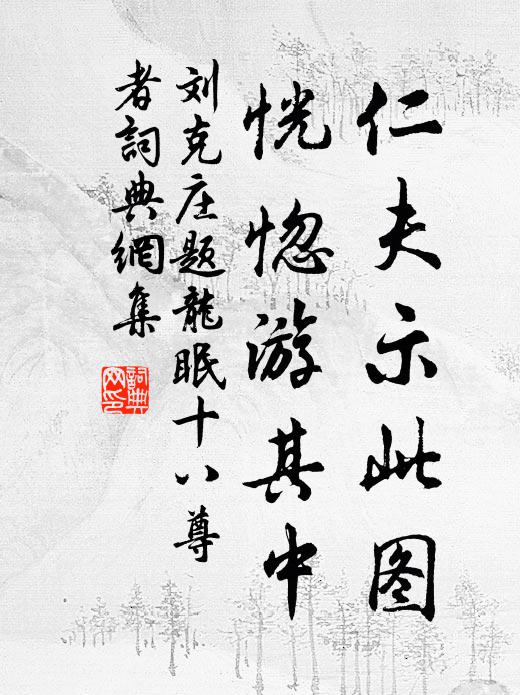 仁夫示此图
恍惚游其中
刘克庄题龍眠十八尊
者詞典網集
詞典网印